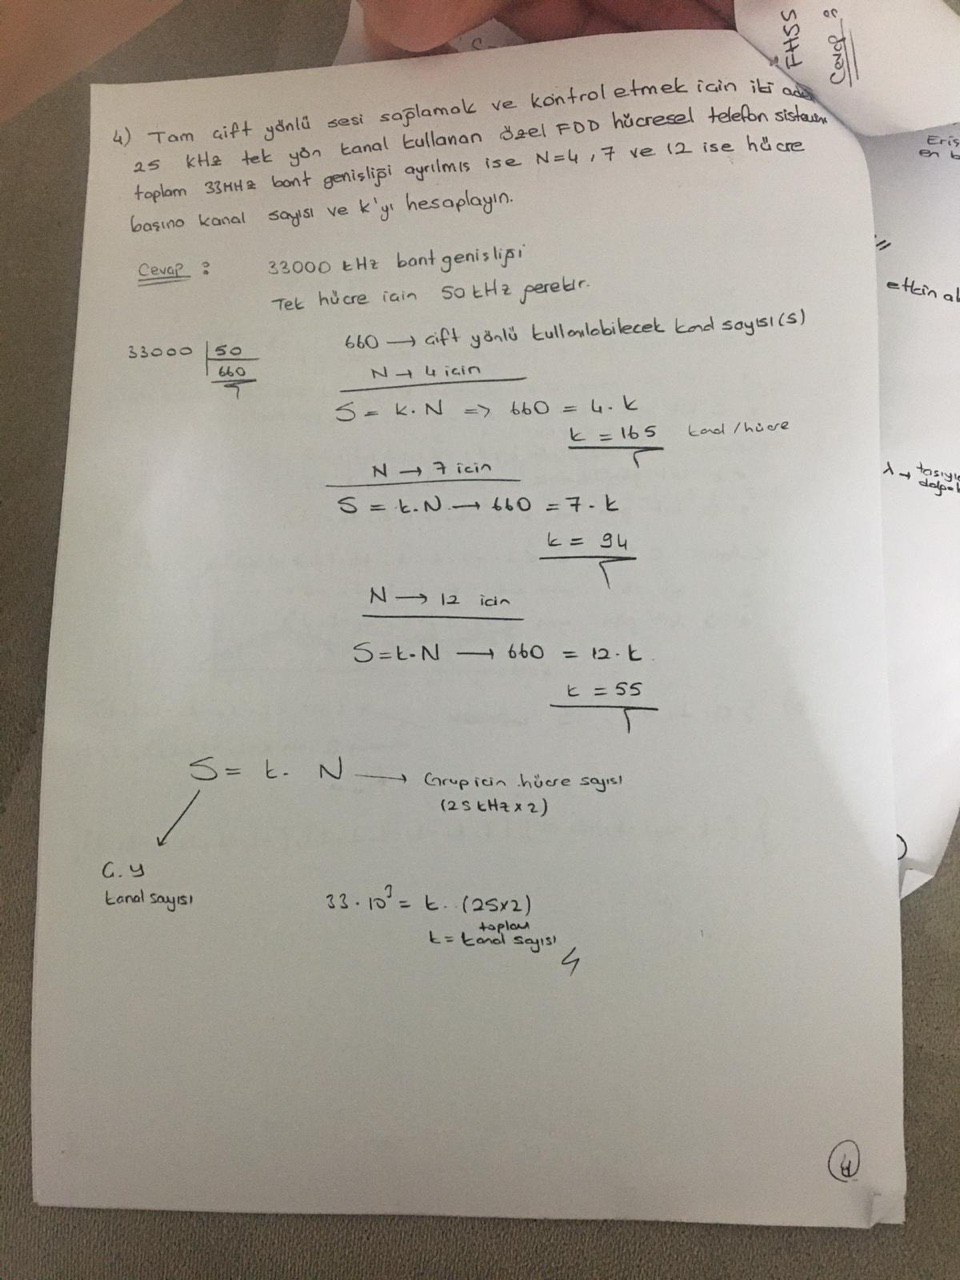 FHSS
Cevap :
4) Tam çift yönlü sesi sağlamak ve kontrol etmek için iki adet
25 kHz tek yön kanal kullanan özel FDD hücresel telefon sistemi
toplam 33MHz bant genişliği ayrılmış ise N=4, 7 ve 12 ise hücre
başına kanal sayısı ve k'yı hesaplayın.
Cevap :
33000 kHz bant genişliği
Tek hücre için 50 kHz gerekir.
33000 50
660
660 → çift yönlü kullanılabilecek kanal sayısı (S)
N → 4 için
S = k. N => 660 = 4. k
k = 165 kanal / hücre
N → 7 için
S = k. N → 660 = 7. k
k = 94
N → 12 için
S = k. N → 660 = 12. k
k = 55
S = k. N → Grup için hücre sayısı
(25 kHz x 2)
Ç. Y
kanal sayısı
33 . 10³ = k. (25x2)
toplam
k = kanal sayısı
4
en
etkin
λ →